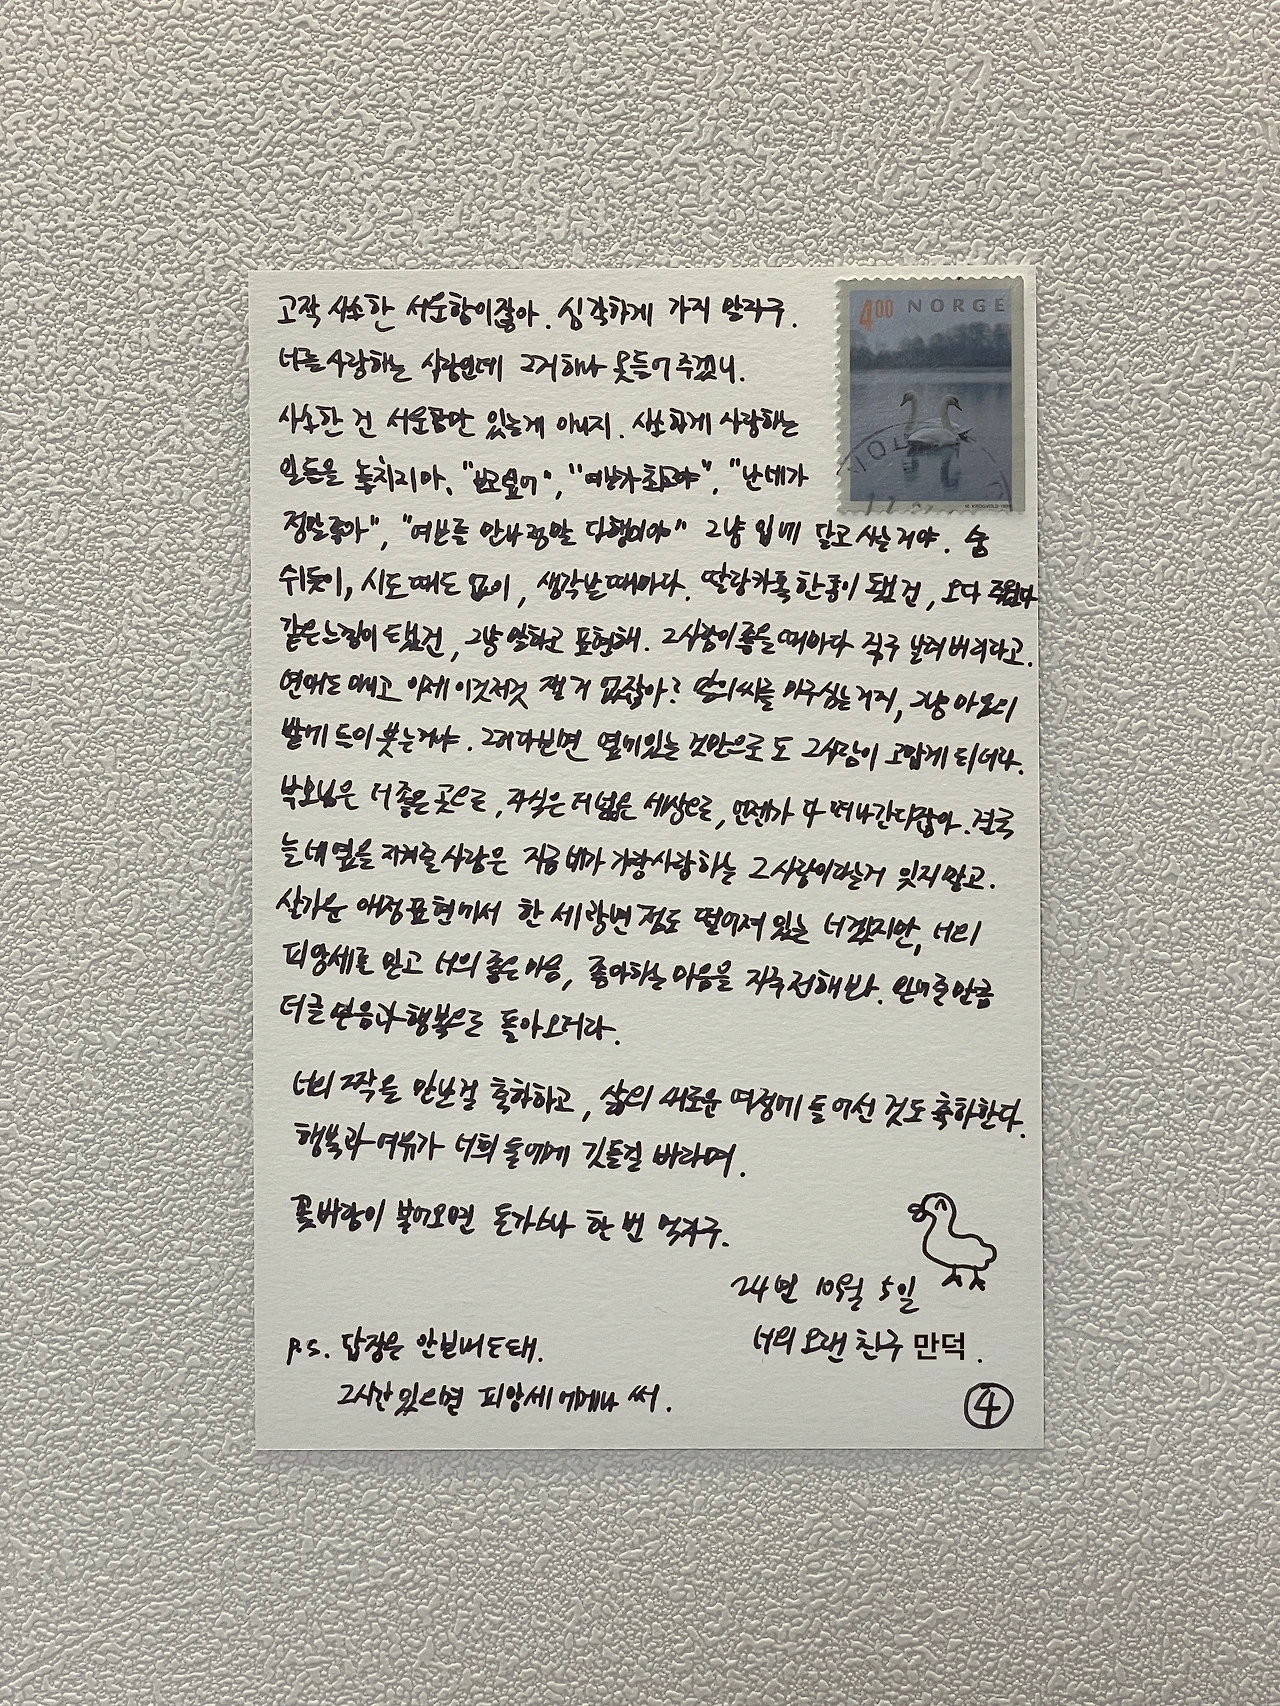 고작 사소한 서운함이잖아. 심각하게 가지 말자구.
4.00 NORGE
너를 사랑하는 사람인데 그거 하나 못 들어 주겠니.
사소한 건 서운함만 있는게 아니지. 사소하게 사랑하는
일들을 놓치지마. "보고싶어", "여보가 최고야", "난 네가
정말 좋아", "여보를 만나 정말 다행이야" 그냥 입에 달고 사는거야. 숨
쉬듯이, 시도 때도 없이, 생각날때마다. 딸랑 카톡 한통이 됐건, 오다 주웠다
같은 느낌이 됐건, 그냥 말하고 표현해. 그사람이 좋을때마다 직구 날려버리라고.
연애도 아니고 이제 이것저것 잴 거 없잖아? 말의 씨를 마구 심는거지, 그냥 마음의
밭에 들이 붓는거야. 그러다보면 옆에있는 것만으로도 그사람이 고맙게 되더라.
부모님은 더 좋은 곳으로, 자식은 더 넓은 세상으로, 언젠가 다 떠나간다잖아. 결국
늘 네 옆을 지켜줄 사람은 지금 네가 가장 사랑하는 그 사람이라는거 잊지말고.
살가운 애정표현에서 한 세 광년 정도 떨어져 있는 너겠지만, 너의
피앙세를 믿고 너의 좋은 마음, 좋아하는 마음을 자주 전해봐. 안겨준만큼
더 큰 믿음과 행복으로 돌아오더라.
너의 짝을 만난걸 축하하고, 삶의 새로운 여정에 들어선 것도 축하한다.
행복과 여유가 너희 둘에게 깃들길 바라며.
꽃바람이 불어오면 돈가스나 한 번 먹자구.
24년 10월 5일
너의 오랜 친구 만덕.
P.S. 답장은 안보내도돼.
그시간있으면 피앙세에게나 써.
④